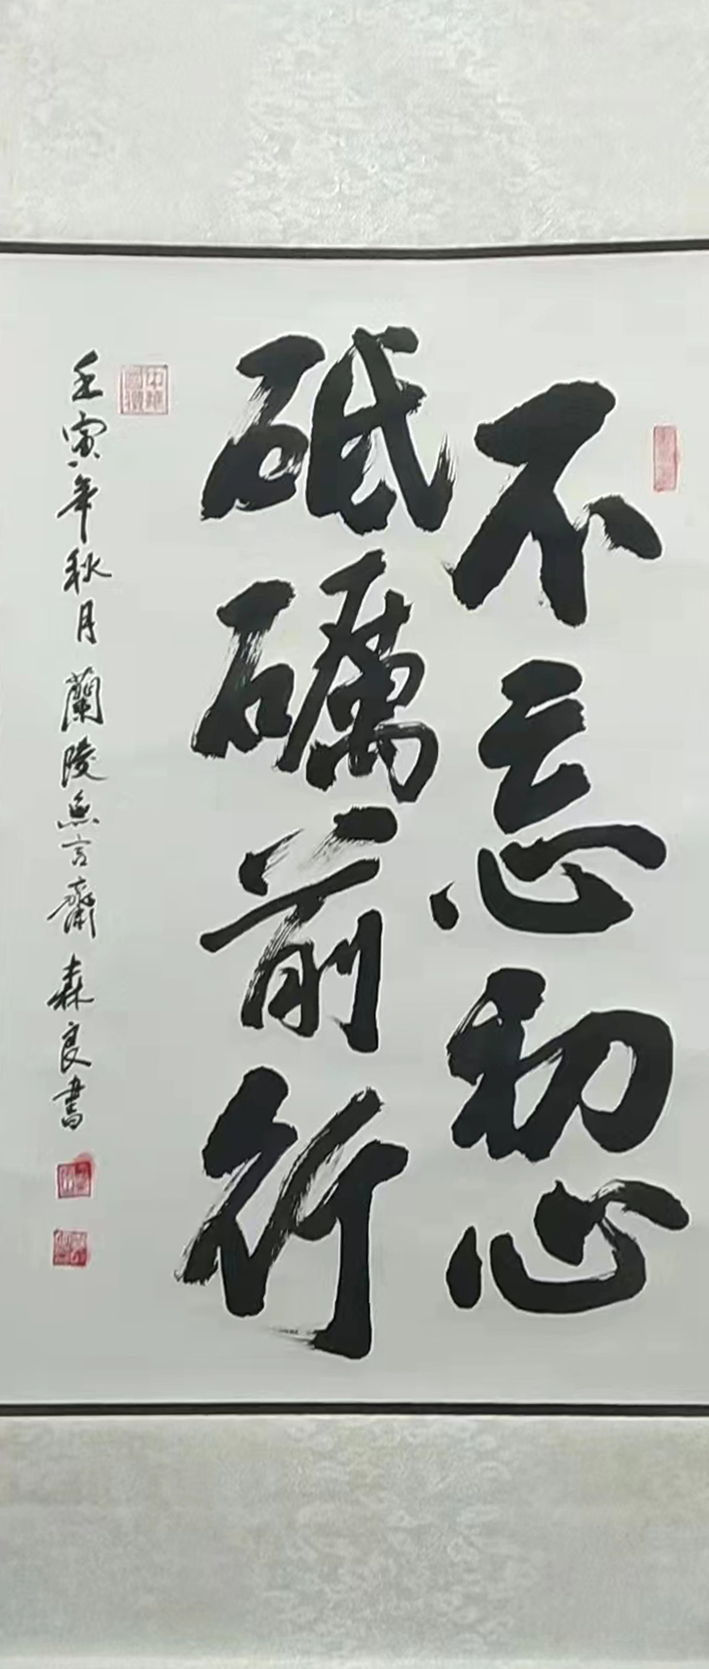 不忘初心
砥礪前行
壬寅年秋月蘭陵無言齋森良書